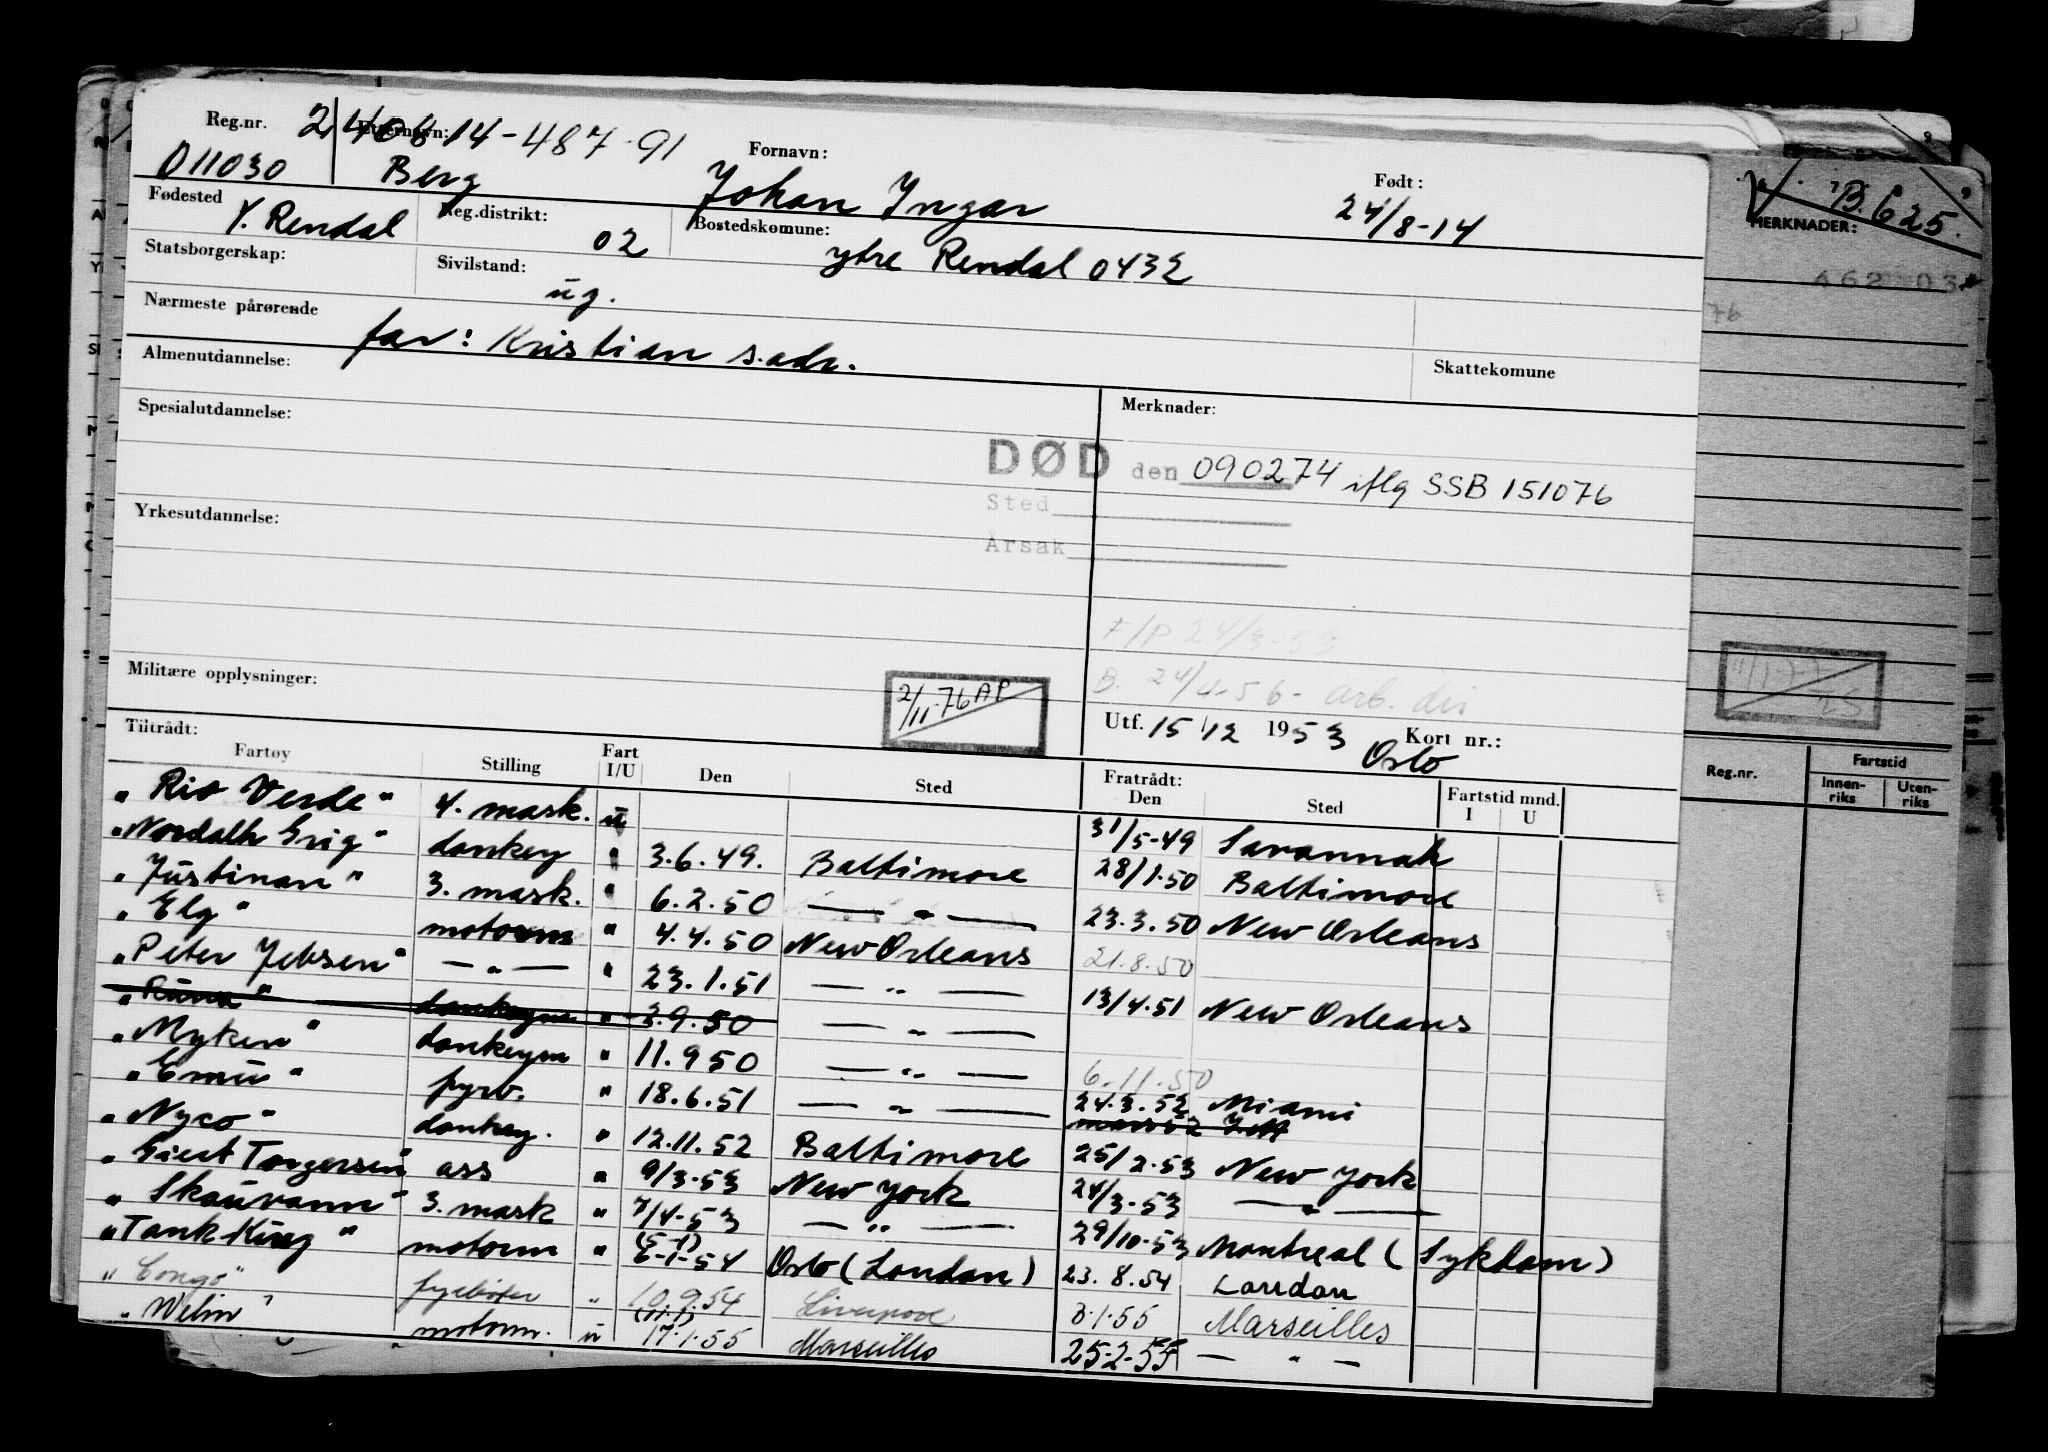 Reg.nr. Etternavn: Fornavn: Født:
240814-487-91
011030 Berg Johan Yngar 24/8-14
Fødested Reg.distrikt: Bostedskomune:
Y. Rendal 02 ytre Rendal 0432
Statsborgerskap: Sivilstand:
ug.
Nærmeste pårørende
far: Kristian s.adr.
Almenutdannelse: Skattekomune
Spesialutdannelse: Merknader:
DØD den 090274 iflg SSB 151076
Sted
Årsak
Yrkesutdannelse:
F/P 24/3-53
B. 24/4-56- arb. dir
Militære opplysninger: 2/11-76 AP
Utf. 15/12 1953 Kort nr.:
Oslo
Tiltrådt: Fratrådt:
Fartøy Stilling Fart I/U Den Sted Den Sted Fartstid mnd. I U
"Rio Verde" 4. mask. u 31/5-49 Savannah
"Nordalh Grig" donkey " 3.6.49. Baltimore 28/1.50 Baltimore
"Justinan" 3. mask. " 6.2.50 — " — 23.3.50 New Orleans
"Elg" motorm " 4.4.50 New Orleans 21.8.50
"Peter Jebsen" — " — " 23.1.51 — " — 13/4.51 New Orleans
"Runa" donkeym " 2.9.50 — " —
"Myken" donkeym " 11.9.50 — " — 6.11.50
"Emu" fyrb. " 18.6.51 — " — 24.3.52 Miami
"Nyco" donkey. " 12.11.52 Baltimore 25/2.53 New York
"Giert Torgersen" ass " 9/3-53 New York 24/3-53 — " —
"Skauvann" 3. mask " 7/4-53 — " — 29/10-53 Montreal (Sykdom)
"Tank King" motorm " (5-1) 6-1-54 Oslo (London) 23.8.54 London
"Congo" fyrbøter " 10.9.54 Liverpool 8.1.55 Marseilles
"Welin" motorm. u (11.1) 17.1.55 Marseilles 25-2-55 — " —
B.625.
MERKNADER:
462 03
Reg.nr. Fartstid
Innen-riks Uten-riks